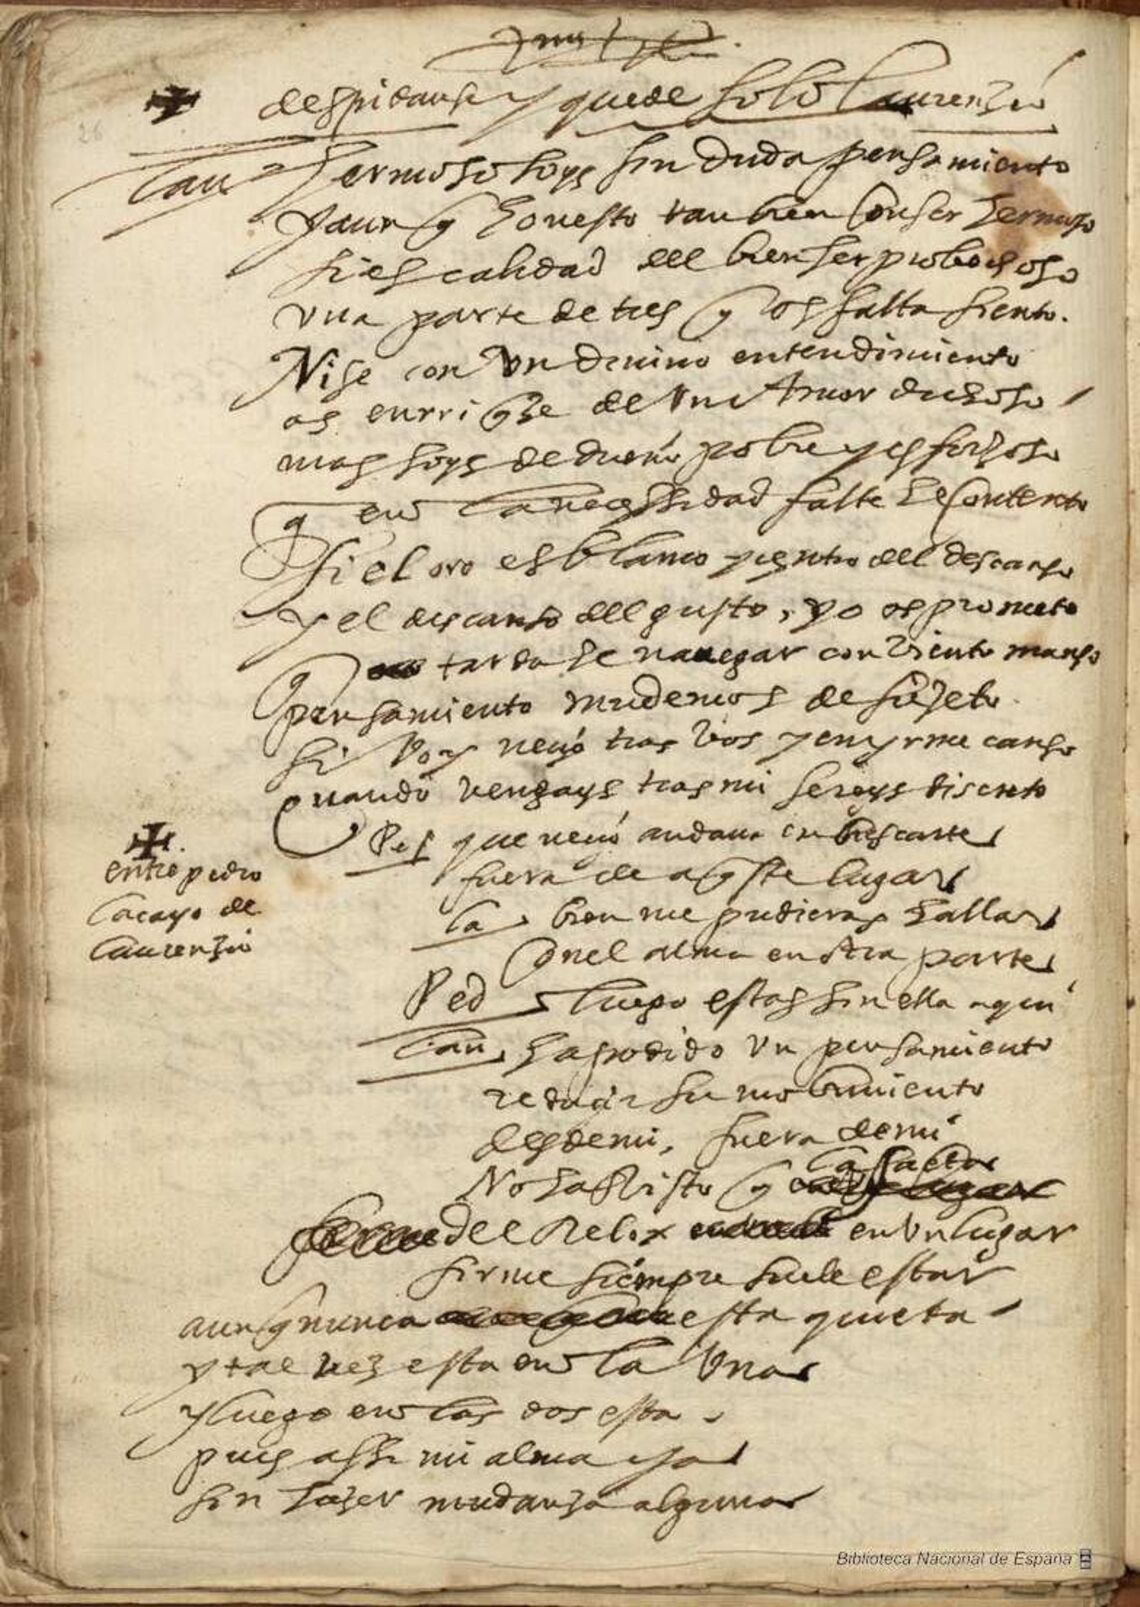 despidanse y quede solo laurenzio
lau Hermoso soys sin duda pensamiento
y aunq honesto tambien con ser hermoso
si es calidad del bien ser probechoso
vna parte de tres q os falta siento.
Nise con vn divino entendimiento
os enrriqze de vn Amor dichoso
mas soys de dueño pobre y es forzoso
q en la necessidad falte el contento
si el oro es blanco y centro del descanso
y el descanso del gusto, yo os prometo
q tarda se navegar con viento manso
pensamiento mudemos de sujeto
si voy necio tras vos y en yrme canso
quando vengays tras mi sereys discreto
✠
entre pedro
lacayo de
laurenzio
Ped que necio andava en buscarte
fuera de aqste lugar
la bien me pudieras hallar
con el alma en otra parte
Ped luego estas sin ella aqui
lau ha podido vn pensamiento
reducir su mobimiento
desde mi, fuera de mi
No has visto q la saeta
del Relox en vn lugar
firme siempre suele estar
aunq nunca esta quieta
y tal vez esta en la vna
y luego en las dos esta
pues assi mi alma ya
sin hazer mudanza alguna
Biblioteca Nacional de España